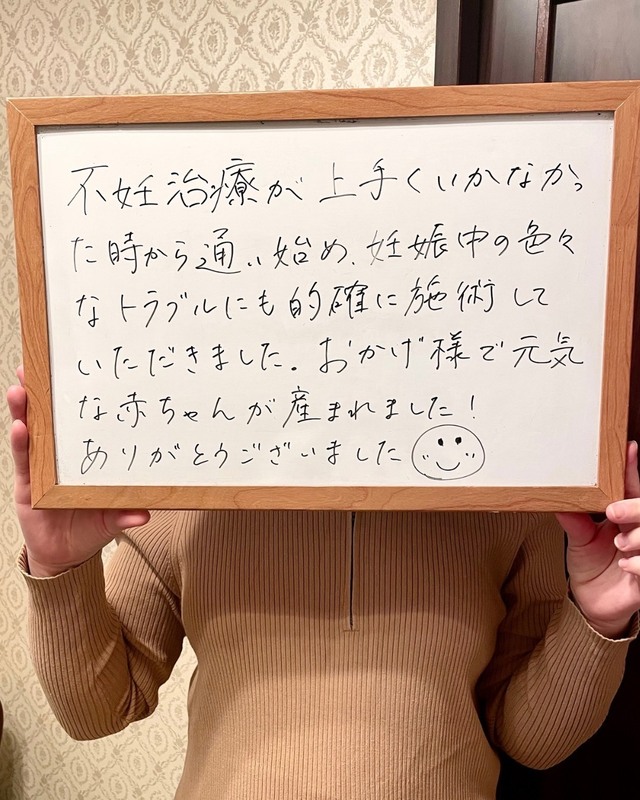 不妊治療が上手くいかなかっ
た時から通い始め、妊娠中の色々
なトラブルにも的確に施術して
いただきました。おかげ様で元気
な赤ちゃんが産まれました！
ありがとうございました